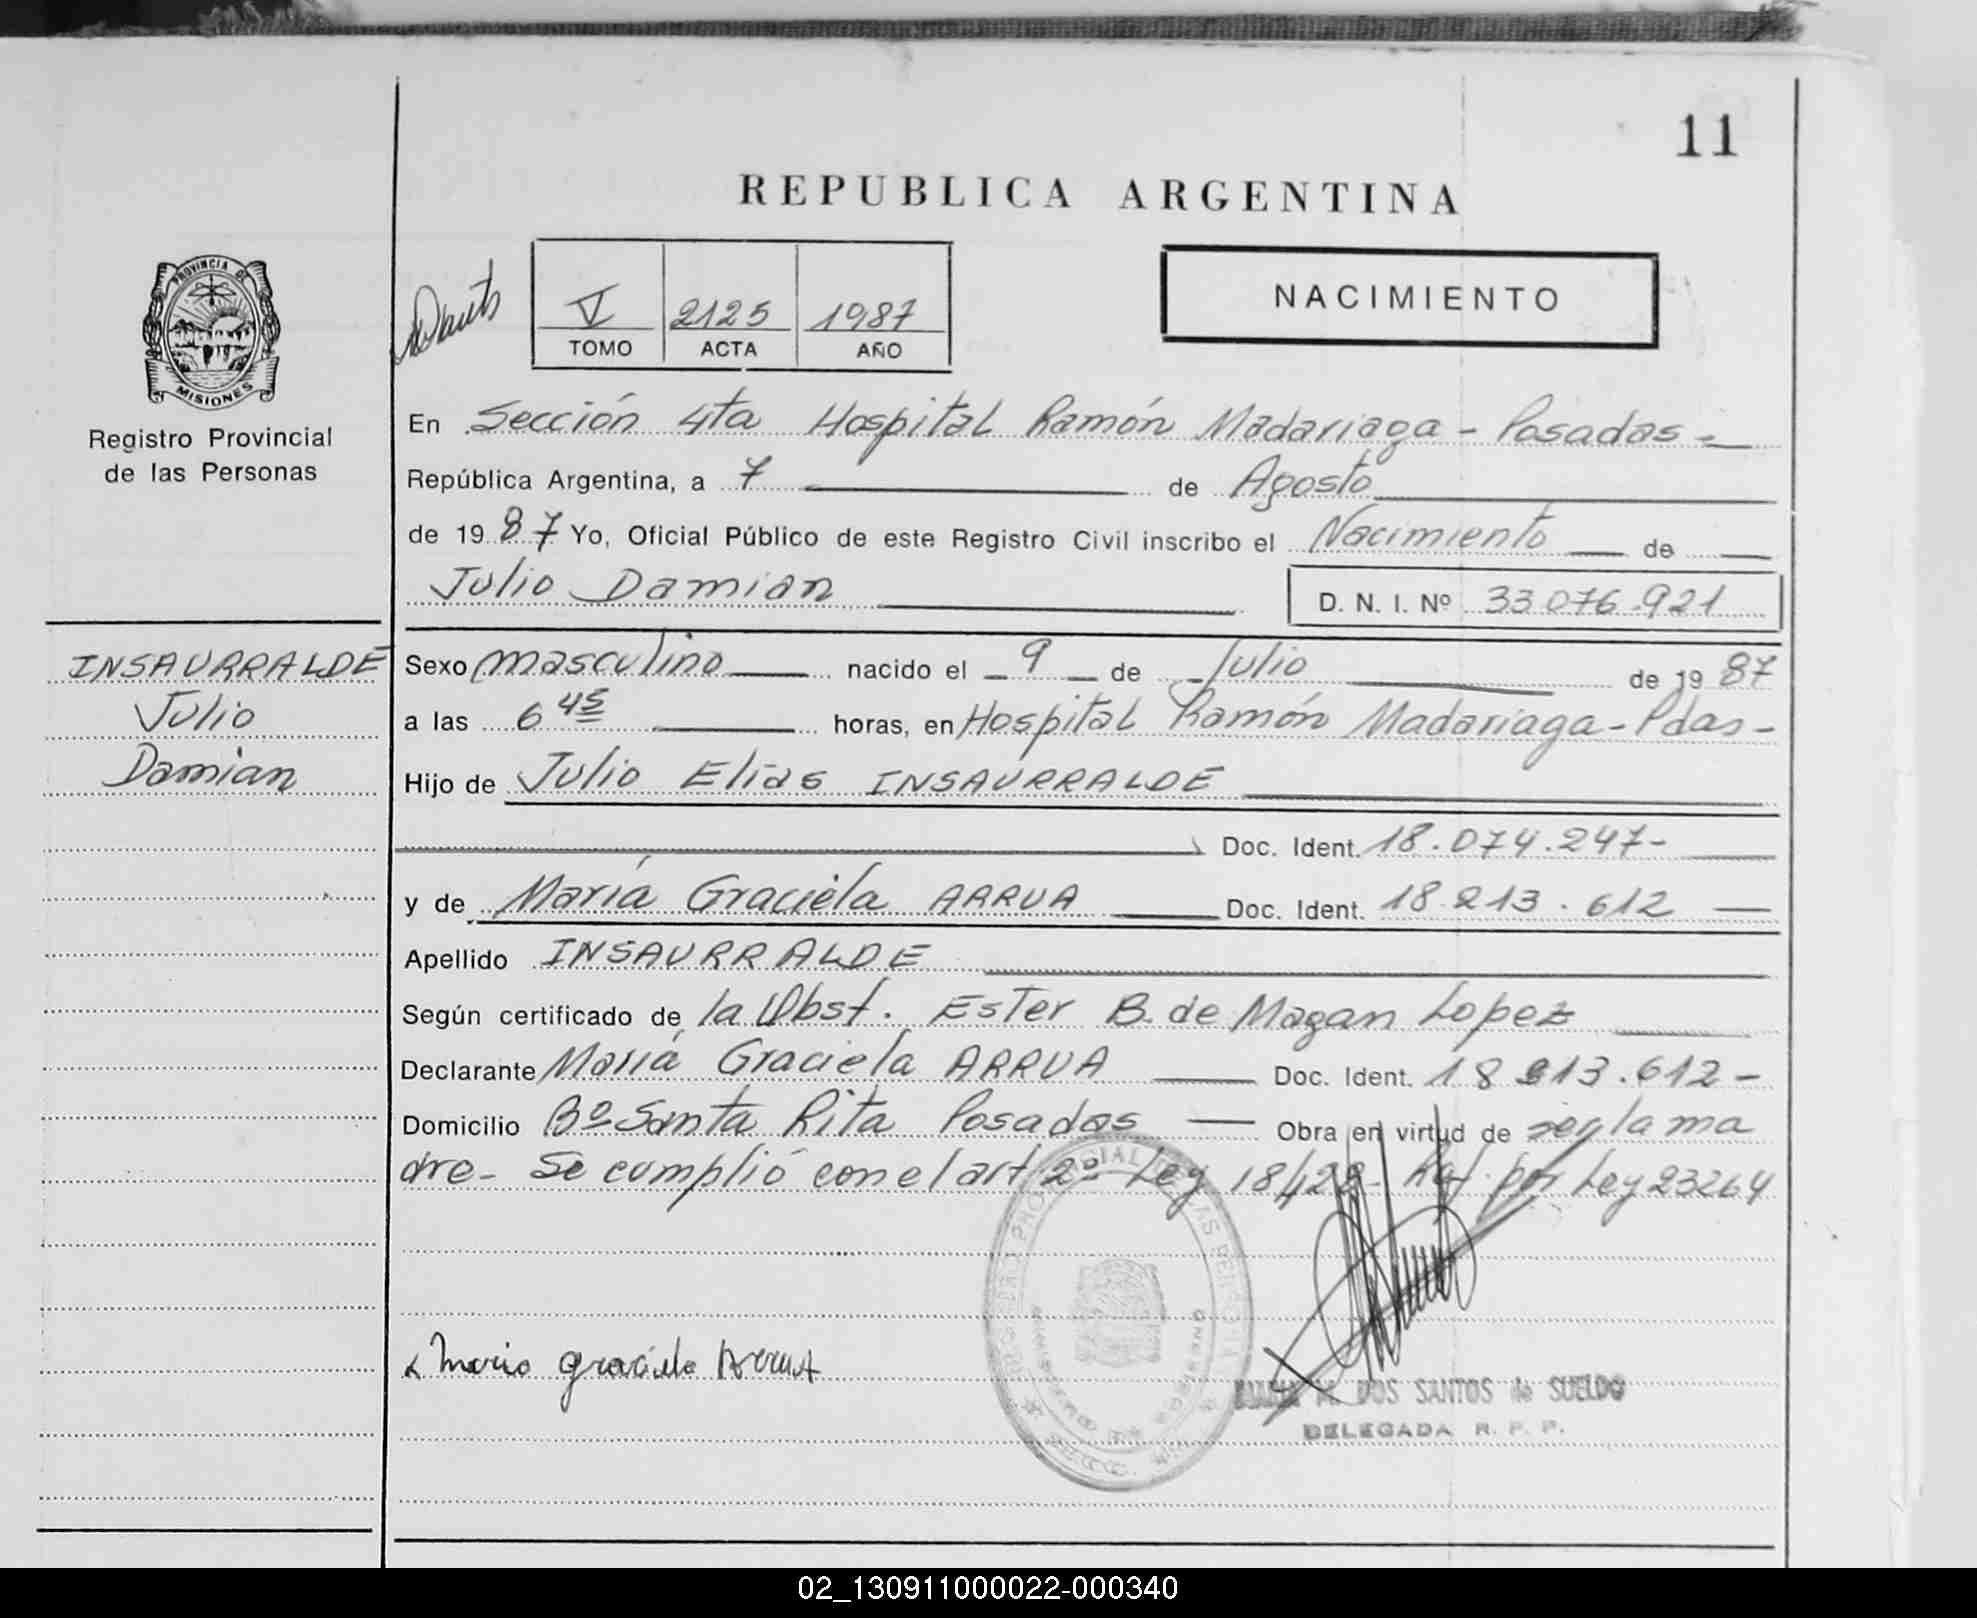 11
REPUBLICA ARGENTINA
PROVINCIA DE
MISIONES
Registro Provincial
de las Personas
V 2125 1987
TOMO ACTA AÑO
NACIMIENTO
En Sección 4ta Hospital Ramón Madariaga - Posadas -
República Argentina, a 7 de Agosto
de 1987 Yo, Oficial Público de este Registro Civil inscribo el Nacimiento de
Julio Damian D. N. I. Nº 33 076.921
INSAURRALDE
Julio
Damian
Sexo masculino nacido el 9 de Julio de 1987
a las 6 45 horas, en Hospital Ramón Madariaga - Pdas -
Hijo de Julio Elias INSAURRALDE
Doc. Ident. 18.074.247-
y de María Graciela ARRUA Doc. Ident. 18.213.612
Apellido INSAURRALDE
Según certificado de la Obst. Ester B. de Magan Lopez
Declarante María Graciela ARRUA Doc. Ident. 18 213.612 -
Domicilio Bº Santa Rita Posadas Obra en virtud de ser la ma
dre - Se cumplió con el art. 2º Ley 18428 - Raf. por Ley 23264
Maria Graciela Arrua
M. DOS SANTOS de SUELDO
DELEGADA R. P. P.
02_130911000022-000340